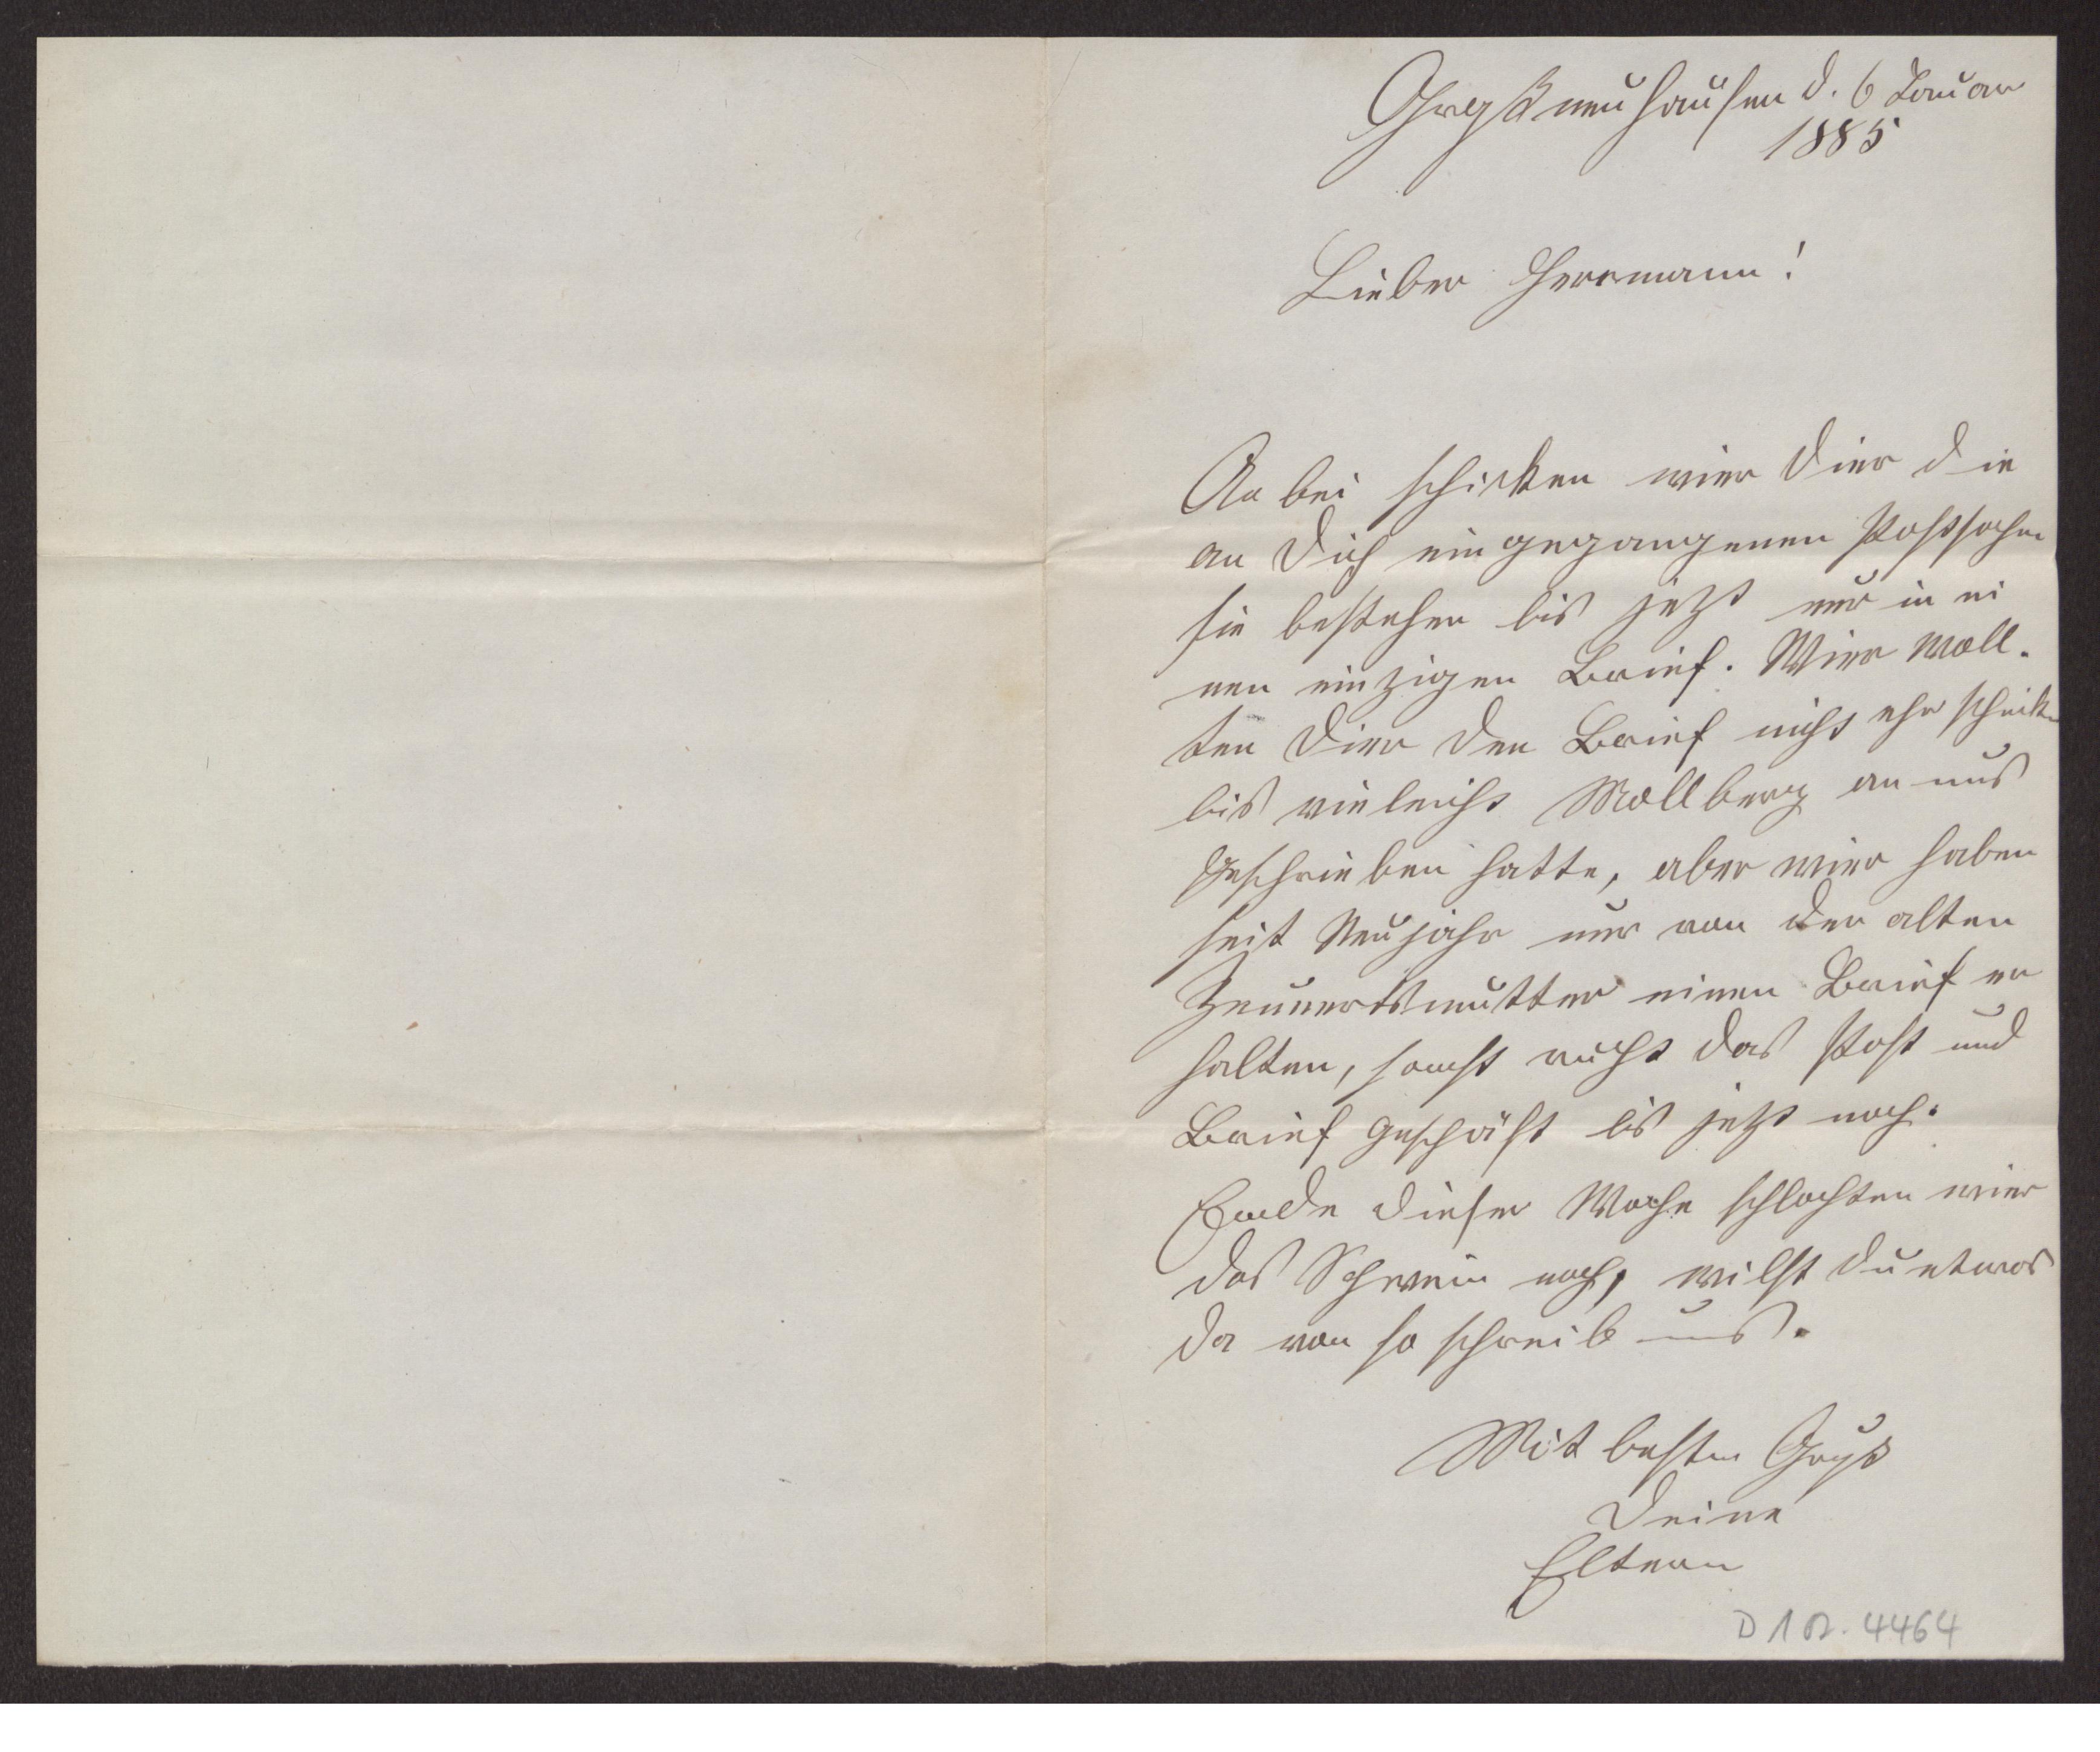 Großneuhausen d. 6 Januar
1885
Lieber Herrmann!
An bei schicken wier Dier die
an Dich eingegangenen Postsachen
sie bestehen bis jetzt nur in ei
nen einzigen Brief. Wier woll-
ten Dier den Brief nicht ehr schicken
bis vieleicht Mollberg an uns
geschrieben hatte, aber wier haben
seit Neujahr nur von der alten
einen Brief er
halten, sonst ruht das Post und
Brief geschäft bis jetzt noch.
Ende dieser Woche schlachten wier
das Schwein noch, willst du etwas
da von so schreib uns.
Mit besten Gruß
Deine
Eltern
D 1 N. 4464